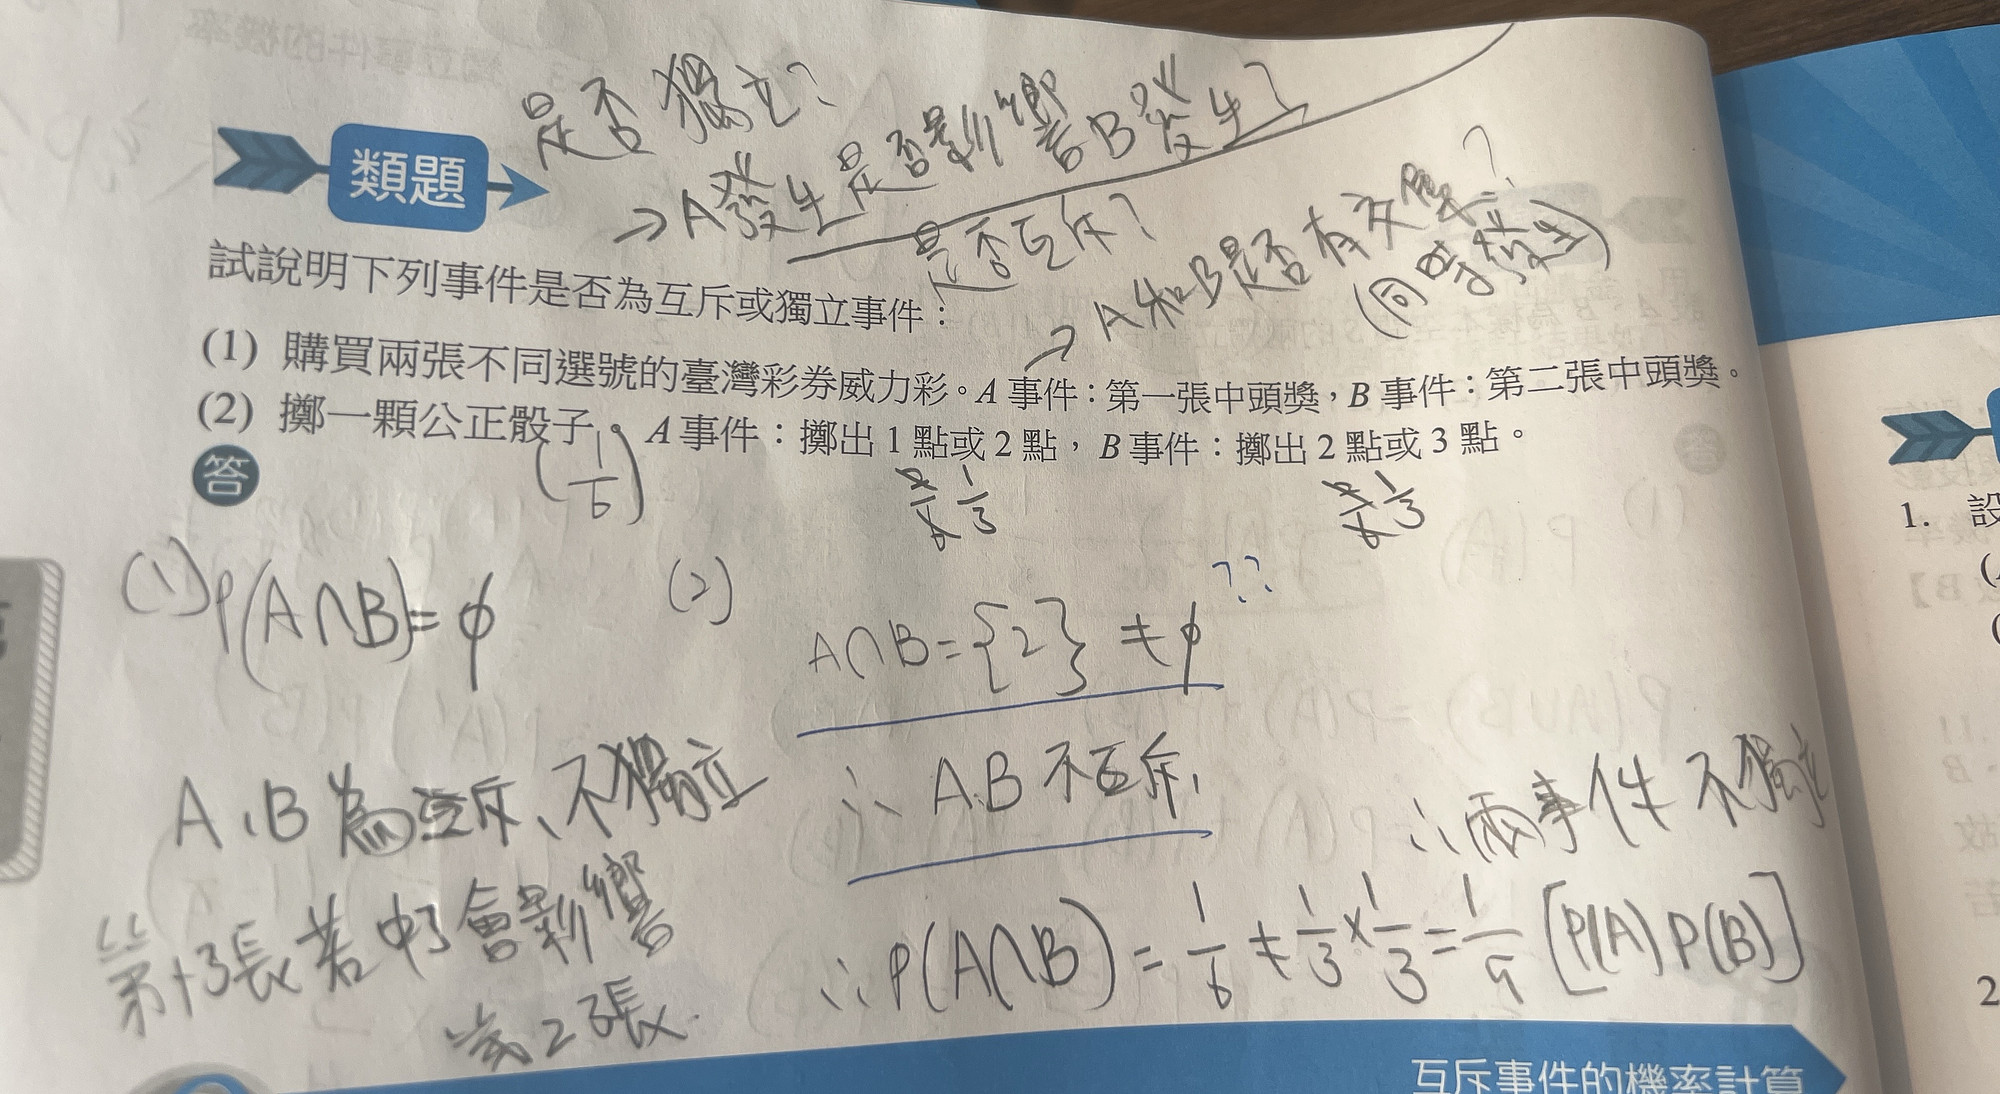 是否獨立?
→A發生是否影響B發生?
類題
是否互斥?
→A和B是否有交集?
(同時發生)
試說明下列事件是否為互斥或獨立事件:
(1) 購買兩張不同選號的臺灣彩券威力彩。A 事件:第一張中頭獎,B 事件:第二張中頭獎。
(2) 擲一顆公正骰子。A 事件:擲出 1 點或 2 點,B 事件:擲出 2 點或 3 點。
答
(1/6)
2/6 1/3
2/6 1/3
(1) P(A∩B)=φ
A、B 為互斥、不獨立
第1張若中了會影響
第2張.
(2)
A∩B={2}≠φ ??
∴ A.B 不互斥,
∴兩事件不獨立
∴P(A∩B)=1/6≠1/3×1/3=1/9 [P(A)P(B)]
互斥事件的機率計算
1. 設
2